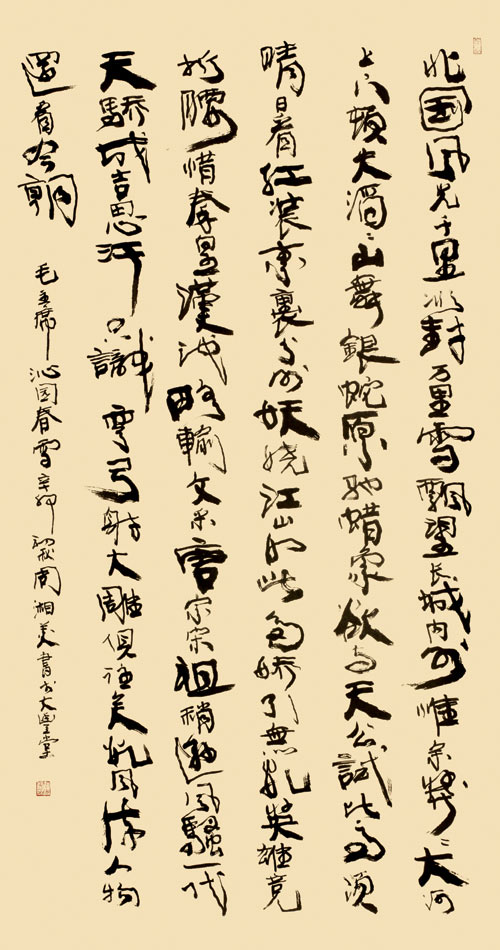 北国风光千里冰封万里雪飘望长城内外惟余莽〻大河
上下頓失滔〻山舞銀蛇原驰蜡象欲与天公試比高须
晴日看红装素裹分外妖娆江山如此多娇引無数英雄竞
折腰惜秦皇漢武略輸文采唐宗宋祖稍逊风騷一代
天骄成吉思汗只識弯弓射大雕俱往矣数风流人物
還看今朝
毛主席沁园春雪辛卯初秋周湘美書於大堂